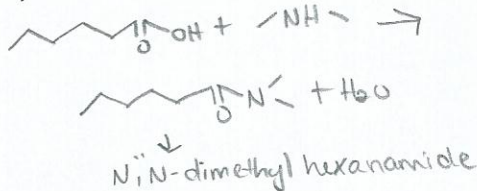 OH + NH →
O
N + H₂O
O
↓
N,N-dimethyl hexanamide